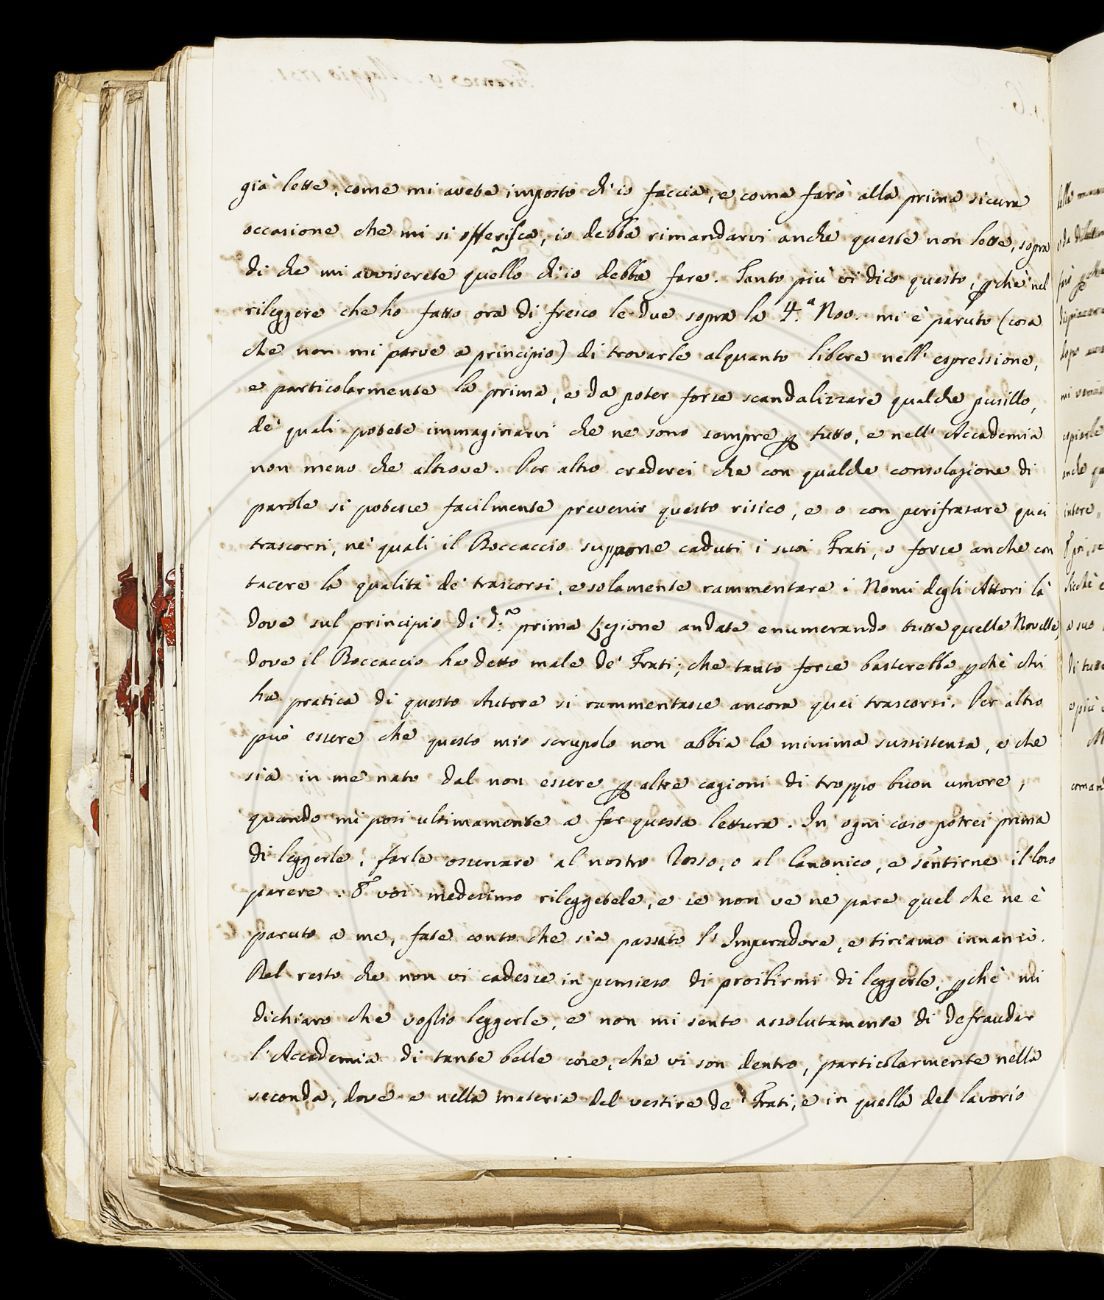 già lette, come mi avete imposto ch'io faccia, e come farò alla prima sicura
occasione che mi si offerisca, io debba rimandarvi anche queste non lette, sopra
di che mi avviserete quello ch'io debba fare. Tanto più vi dico questo, pchè nel
rileggere che ho fatto ora di fresco le due sopra la 4.ª Nov. mi è paruto (cosa
che non mi parve a principio) di trovarle alquanto libere nell'espressione,
e particolarmente la prima, e da poter forse scandalizzare qualche pusillo,
de' quali potete immaginarvi che ne sono sempre p tutto, e nell'Accademia
non meno che altrove. Per altro crederei che con qualche consolazione di
parole si potesse facilmente prevenir questo risico, e o con perifrasare quei
trascorsi, ne' quali il Boccaccio suppone caduti i suoi Frati, o forse anche con
tacere la qualità de' trascorsi, e solamente rammentare i Nomi degli Attori là
dove sul principio di d.ª prima Lezione andate enumerando tutte quelle Novelle,
dove il Boccaccio ha detto male de' Frati; che tanto forse basterebbe pchè chi
ha pratica di questo Autore si rammentasse ancora quei trascorsi. Per altro
può essere che questo mio scrupolo non abbia la minima sussistenza, e che
sia in me nato dal non essere p altre cagioni di troppo buon umore,
quando mi posi ultimamente a far questa lettura. In ogni caso potrei prima
di leggerle, farle osservare al nostro Rosso, o al Canonico, e sentirne il loro
parere. O voi medesimo rileggetele, e se non ve ne pare quel che ne è
paruto a me, fate conto che sia passato l'Imperadore, e tiriamo innanzi.
Del resto che non vi cadesse in pensiero di proibirmi di leggerle, pchè mi
dichiaro che voglio leggerle, e non mi sento assolutamente di defraudar
l'Accademia di tante belle cose, che vi son dentro, particolarmente nella
seconda, dove e nella materia del vestire de' Frati, e in quella del lavorio